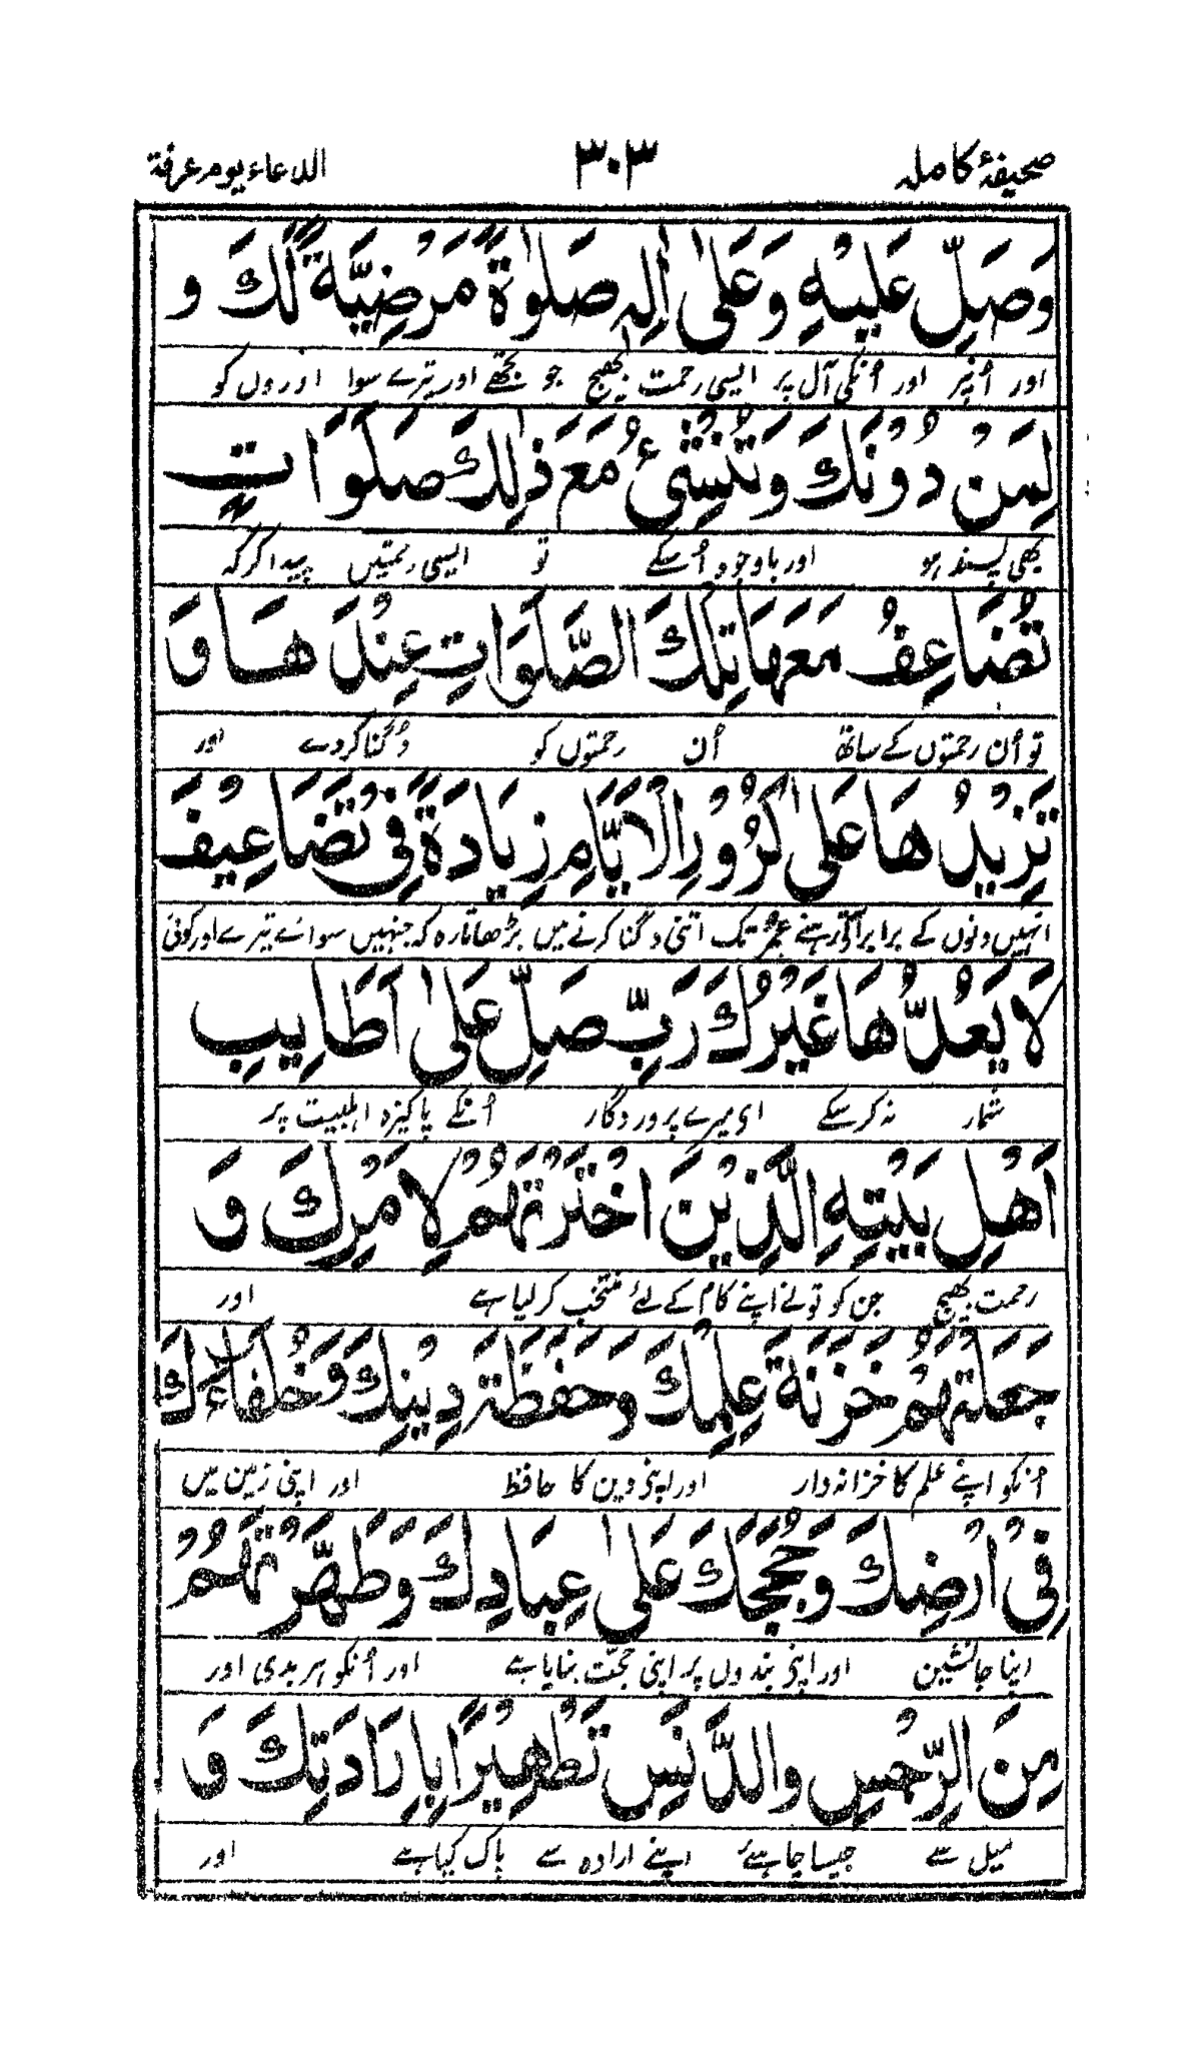 صحیفۂ کاملہ ۳۰۳ الدعاء یوم عرفۃ
وَصَلِّ عَلَيْهِ وَعَلٰى اٰلِهٖ صَلٰوةً مَرْضِيَّةً لَّكَ وَ
اور اُنپر اور اُنکی آل پر ایسی رحمت بھیج جو تجھے اور تیرے سوا اوروں کو
لِمَنْ دُوْنَكَ وَتُنْشِئُ مَعَ ذٰلِكَ صَلَوَاتٍ
بھی پسند ہو اور باوجود اُسکے تو ایسی رحمتیں پیدا کر کہ
تُضَاعِفُ مَعَهَا تِلْكَ الصَّلَوَاتِ عِنْدَهَا وَ
تو اُن رحمتوں کے ساتھ اُن رحمتوں کو دُگنا کردے اور
تَزِيْدُهَا عَلٰى كُرُوْرِ الْاَيَّامِ زِيَادَةً فِيْ تَضَاعِيْفَ
انہیں دنوں کے برابر آتے رہنے تک اتنی دگنا کرنے میں بڑھاتا رہ کہ جنہیں سوائے تیرے اور کوئی
لَا يَعُدُّهَا غَيْرُكَ رَبِّ صَلِّ عَلٰى اَطَايِبِ
شمار نہ کرسکے ای میرے پروردگار اُنکے پاکیزہ اہلبیت پر
اَهْلِ بَيْتِهِ الَّذِيْنَ اخْتَرْتَهُمْ لِاَمْرِكَ وَ
رحمت بھیج جن کو تونے اپنے کام کے لئے منتخب کرلیا ہے اور
جَعَلْتَهُمْ خَزَنَةَ عِلْمِكَ وَحَفَظَةَ دِيْنِكَ وَخُلَفَآءَكَ
اُنکو اپنے علم کا خزانہ دار اور اپنی دین کا حافظ اور اپنی زمین میں
فِيْ اَرْضِكَ وَحُجَجَكَ عَلٰى عِبَادِكَ وَطَهَّرْتَهُمْ
اپنا جانشین اور اپنی بندوں پر اپنی حجّت بنایا ہے اور اُنکو ہر بدی اور
مِنَ الرِّجْسِ وَالدَّنَسِ تَطْهِيْرًا بِاِرَادَتِكَ وَ
میل سے جیسا چاہئے اپنے ارادہ سے پاک کیا ہے اور